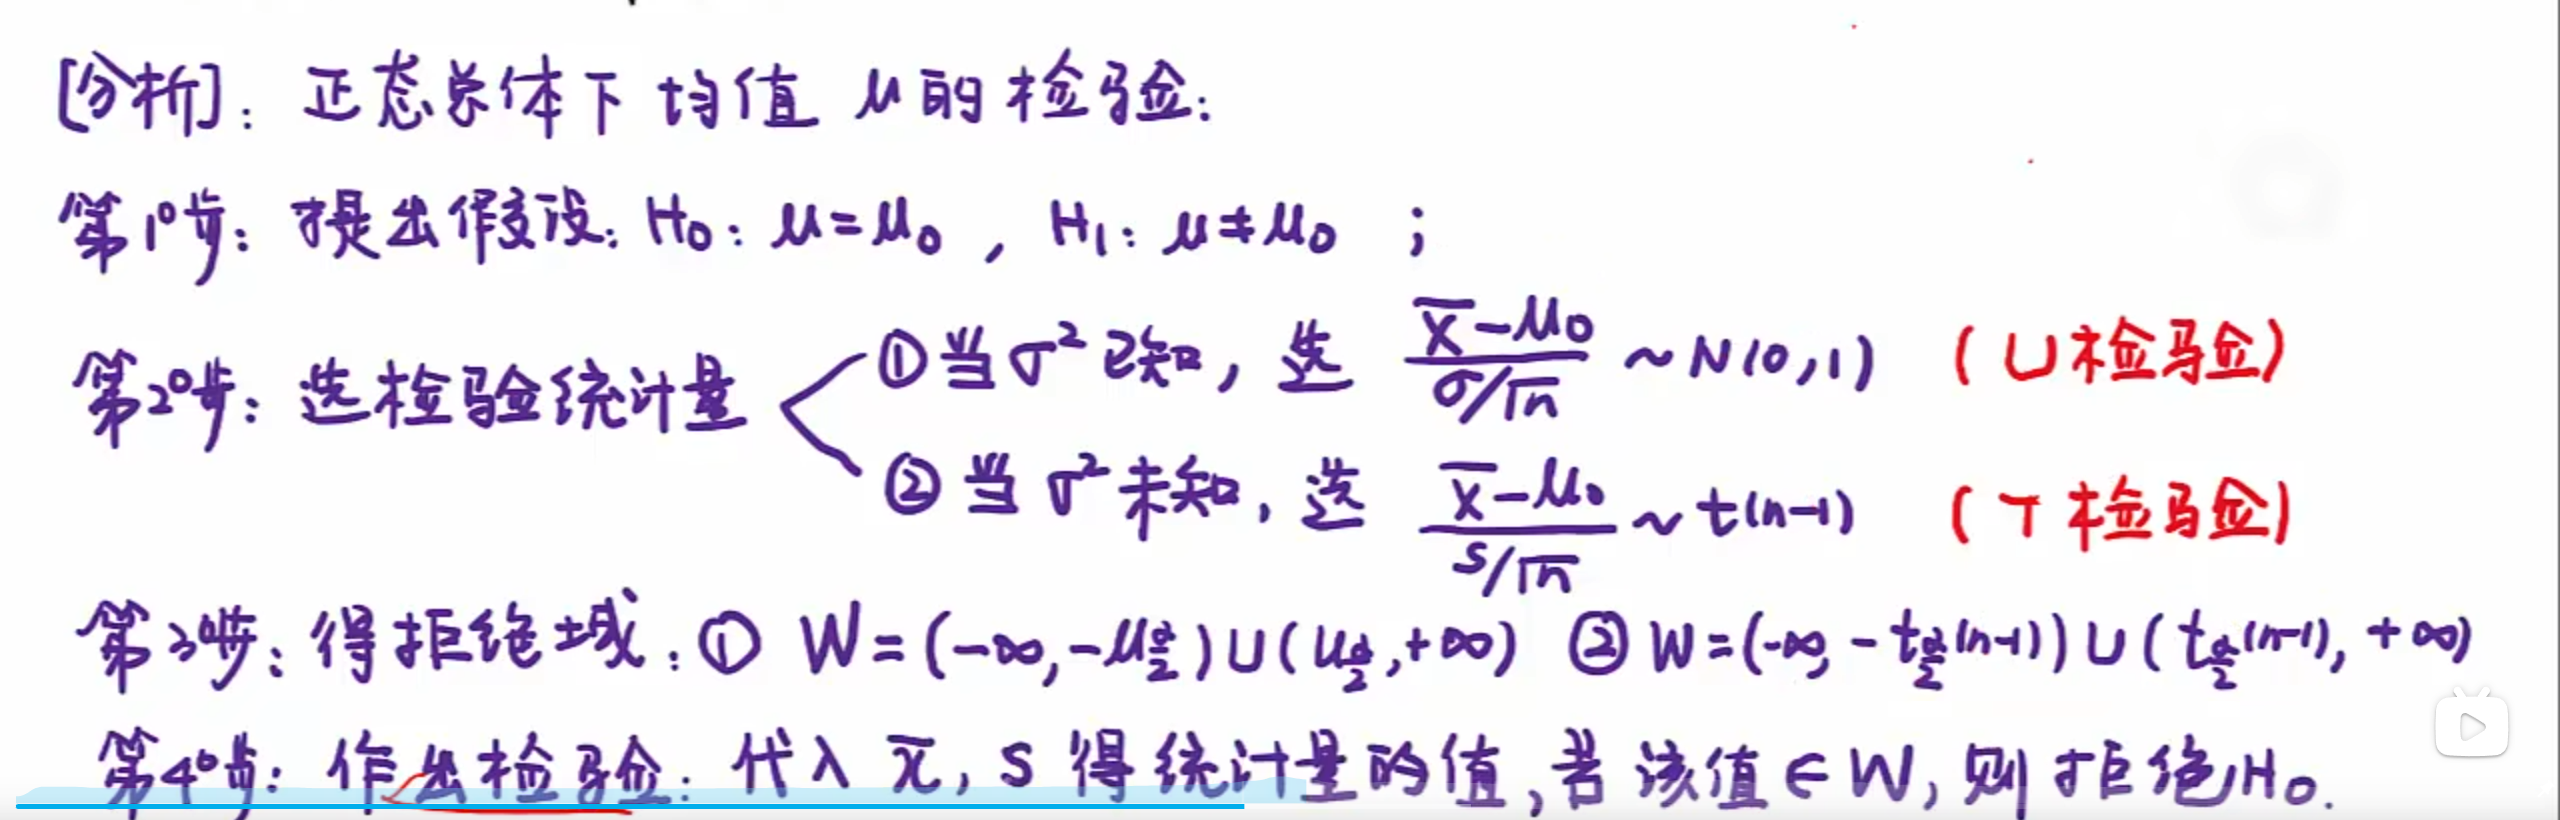 [分析]：正态总体下均值 μ 的检验：
第1°步：提出假设：H₀：μ=μ₀ ，H₁：μ≠μ₀ ；
第2°步：选检验统计量
①当 σ² 已知，选 (x̄-μ₀)/(σ/√n) ~ N(0,1) （U检验）
②当 σ² 未知，选 (x̄-μ₀)/(s/√n) ~ t(n-1) （T检验）
第3°步：得拒绝域：① W=(-∞,-μ_{α/2})∪(u_{α/2},+∞) ② W=(-∞,-t_{α/2}(n-1))∪(t_{α/2}(n-1),+∞)
第4°步：作出检验：代入 x̄，S 得统计量的值，若该值∈W，则拒绝H₀.